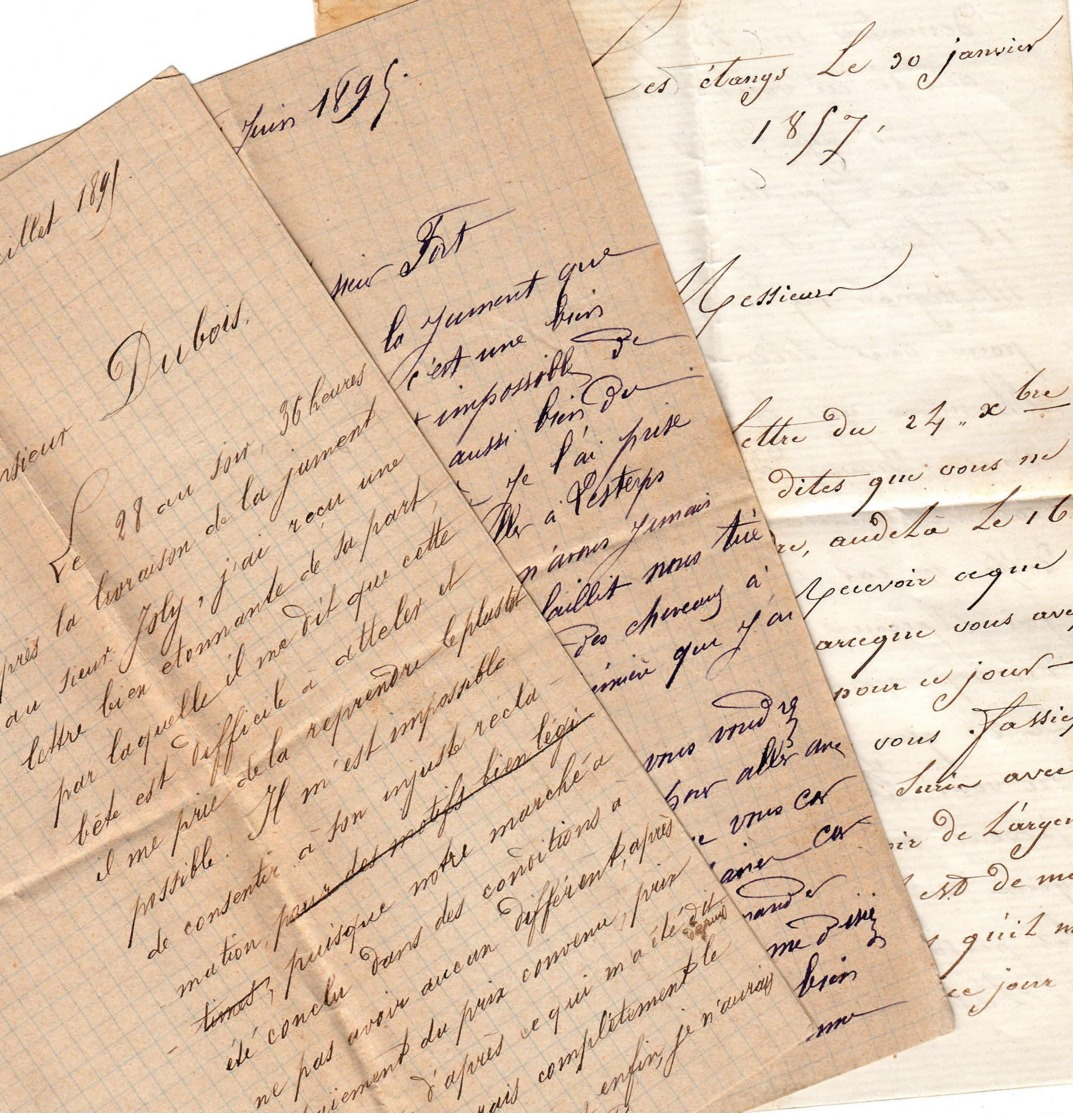 illet 1895
nsieur Dubois.
Le 28 au soir, 36 heures
près la livraison de la jument
au sieur Joly, j'ai reçu une
lettre bien étonnante de sa part,
par laquelle il me dit que cette
bête est difficile à atteler et
il me prie de la reprendre le plustôt
possible. Il m'est impossible
de consentir à son injuste récla-
mation, pour des motifs bien légi-
times, puisque notre marché a
été conclu dans des conditions a
ne pas avoir aucun différent, après
paiement du prix convenu, prix
d'après ce qui m'a été dit
rais complètement le
enfin, je n'aurais
Juin 1895.
sieur Fort
la jument que
c'est une bien
impossible de
aussi bien du
je l'ai prise
à Lesterps
n'avons jamais
faillit nous tué
des chevaux à
que j'ai
vous voudrez
pour aller avec
vous car
car
mander
me
bien
me
Les étangs Le 30 janvier
1857.
Messieurs
lettre du 24 " xbre
dites que vous ne
, audela Le 16
recevoir ceque
arceque vous avez
pour ce jour
vous fassiez
avec
de L'argen
est de me
qu'il m
ce jour